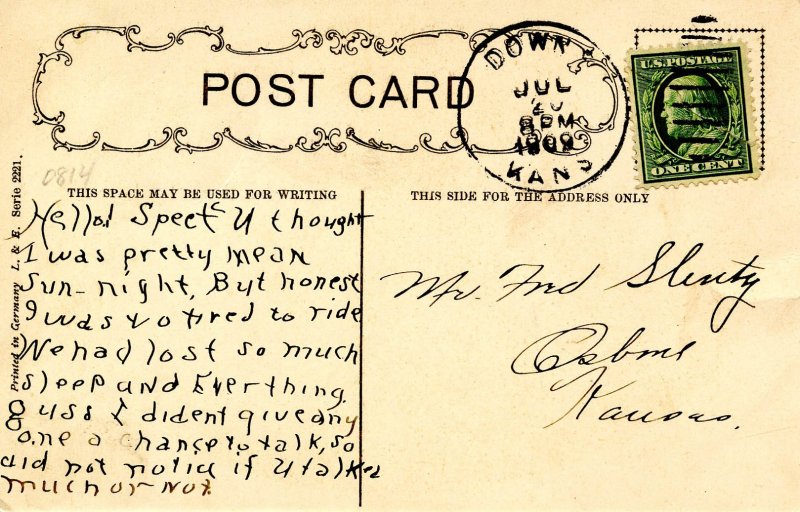 POST CARD
DOWNS
JUL
20
8PM
1909
KANS
U.S. POSTAGE
ONE CENT
0814
Printed in Germany L. & E. Serie 2221.
THIS SPACE MAY BE USED FOR WRITING
THIS SIDE FOR THE ADDRESS ONLY
Hello! Spect U thought
I was pretty mean
Sun-night, But honest
I was to tired to ride
We had lost so much
sleep and Everthing.
Guss I dident give any
one a chance to talk, so
did not notice if U talked
much or not.
Mr. Fred
Osborne
Kansas.